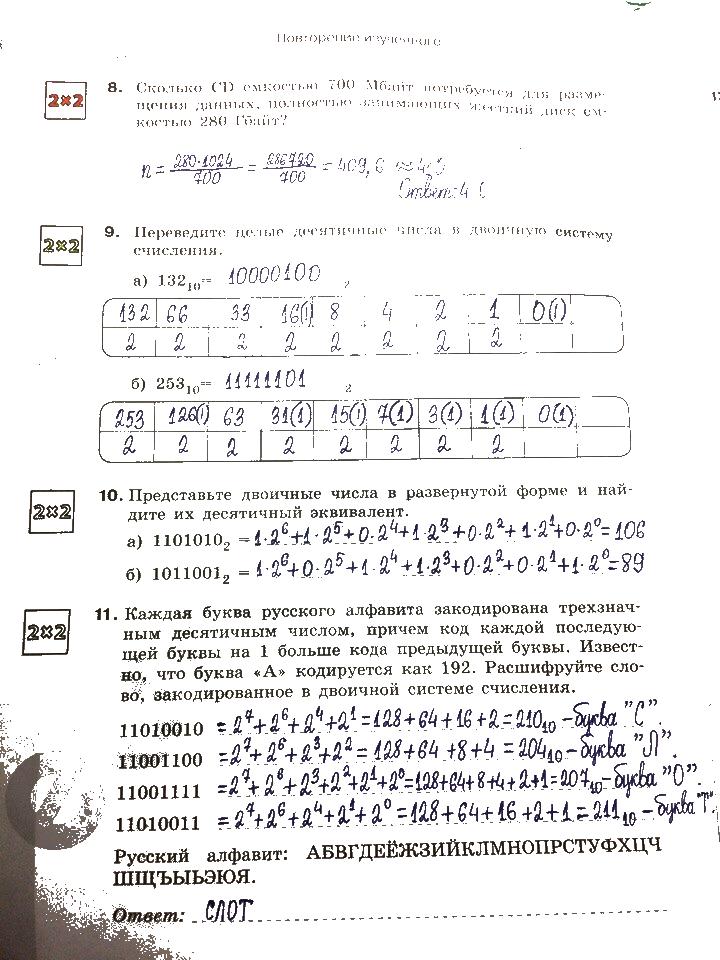 Повторение изученного
2×2
8. Сколько CD емкостью 700 Мбайт потребуется для разме-
щения данных, полностью занимающих жесткий диск ем-
костью 280 Гбайт?
n = 280·1024 / 700 = 286720 / 700 = 409,6 ≈
Ответ: 4
2×2
9. Переведите целые десятичные числа в двоичную систему
счисления.
а) 132₁₀= 10000100 ₂
132 66 33 16(1) 8 4 2 1 0(1)
2 2 2 2 2 2 2 2
б) 253₁₀= 11111101 ₂
253 126(1) 63 31(1) 15(1) 7(1) 3(1) 1(1) 0(1)
2 2 2 2 2 2 2 2
2×2
10. Представьте двоичные числа в развернутой форме и най-
дите их десятичный эквивалент.
а) 1101010₂ = 1·2⁶+1·2⁵+0·2⁴+1·2³+0·2²+1·2¹+0·2⁰=106
б) 1011001₂ = 1·2⁶+0·2⁵+1·2⁴+1·2³+0·2²+0·2¹+1·2⁰=89
2×2
11. Каждая буква русского алфавита закодирована трехзнач-
ным десятичным числом, причем код каждой последую-
щей буквы на 1 больше кода предыдущей буквы. Извест-
но, что буква «А» кодируется как 192. Расшифруйте сло-
во, закодированное в двоичной системе счисления.
11010010 = 2⁷+2⁶+2⁴+2¹=128+64+16+2=210₁₀ – буква "С".
11001100 = 2⁷+2⁶+2³+2² = 128+64+8+4 = 204₁₀ – буква "Л".
11001111 = 2⁷+2⁶+2³+2²+2¹+2⁰=128+64+8+4+2+1=207₁₀ – буква "О".
11010011 = 2⁷+2⁶+2⁴+2¹+2⁰ = 128+64+16+2+1=211₁₀ – буква "Т".
Русский алфавит: АБВГДЕЁЖЗИЙКЛМНОПРСТУФХЦЧ
ШЩЪЫЬЭЮЯ.
Ответ: СЛОТ